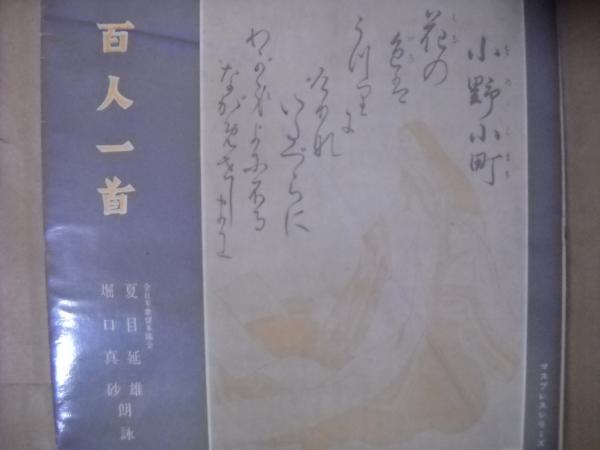 百人一首
小野小町
をのこまち
花の
色は
うつりに
けりな
いたづらに
わが身よにふる
ながめせしまに
夏目延雄
堀口真砂
朗詠
マスプレスシリーズ